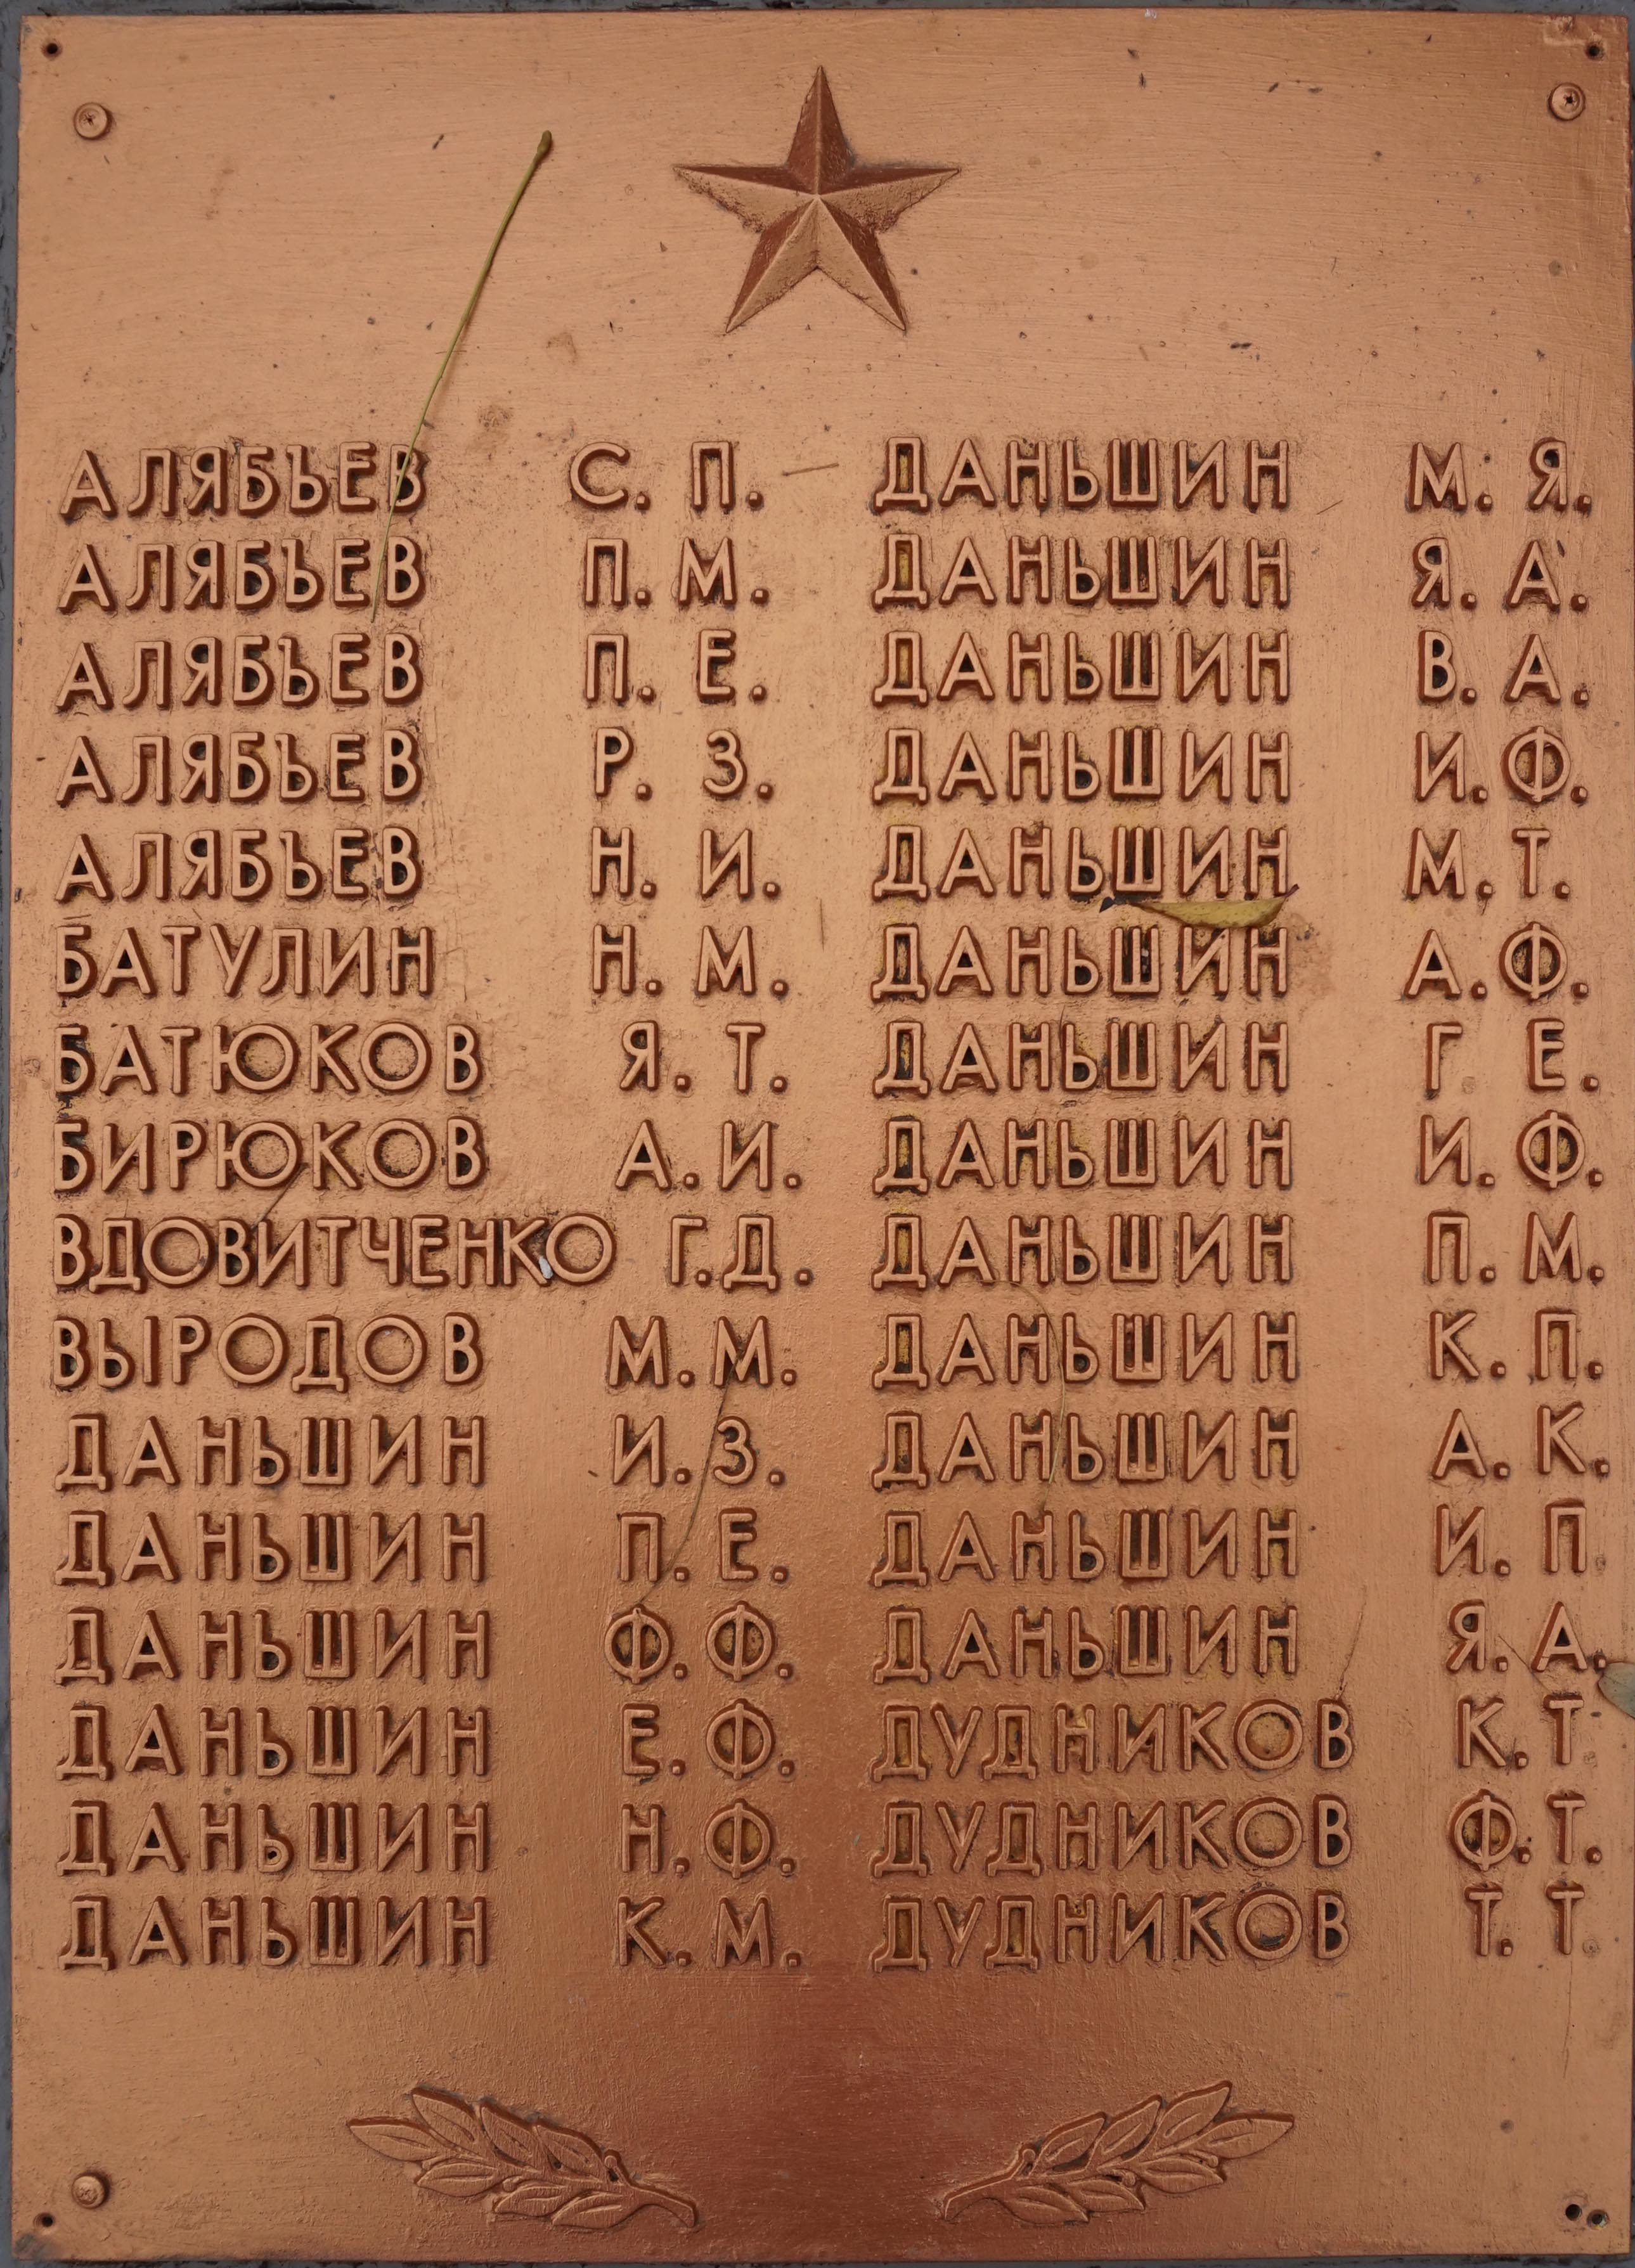 АЛЯБЬЕВ С. П.
АЛЯБЬЕВ П. М.
АЛЯБЬЕВ П. Е.
АЛЯБЬЕВ Р. З.
АЛЯБЬЕВ Н. И.
БАТУЛИН Н. М.
БАТЮКОВ Я. Т.
БИРЮКОВ А. И.
ВДОВИТЧЕНКО Г. Д.
ВЫРОДОВ М. М.
ДАНЬШИН И. З.
ДАНЬШИН П. Е.
ДАНЬШИН Ф. Ф.
ДАНЬШИН Е. Ф.
ДАНЬШИН Н. Ф.
ДАНЬШИН К. М.
ДАНЬШИН М. Я.
ДАНЬШИН Я. А.
ДАНЬШИН В. А.
ДАНЬШИН И. Ф.
ДАНЬШИН М. Т.
ДАНЬШИН А. Ф.
ДАНЬШИН Г Е.
ДАНЬШИН И. Ф.
ДАНЬШИН П. М.
ДАНЬШИН К. П.
ДАНЬШИН А. К.
ДАНЬШИН И. П
ДАНЬШИН Я. А.
ДУДНИКОВ К. Т
ДУДНИКОВ Ф. Т.
ДУДНИКОВ Т. Т.